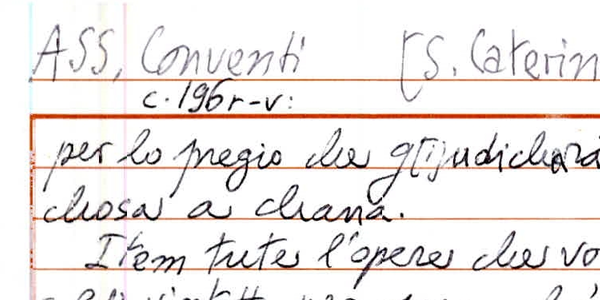 ASS, Conventi [S. Caterin
c. 196r-v:
per lo pregio che g[i]udicherà
chosa a chana.
Item tute l'opere che vo